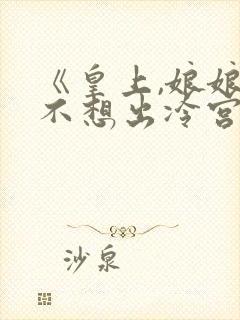 《皇上,娘娘
不想出冷宫
沙泉